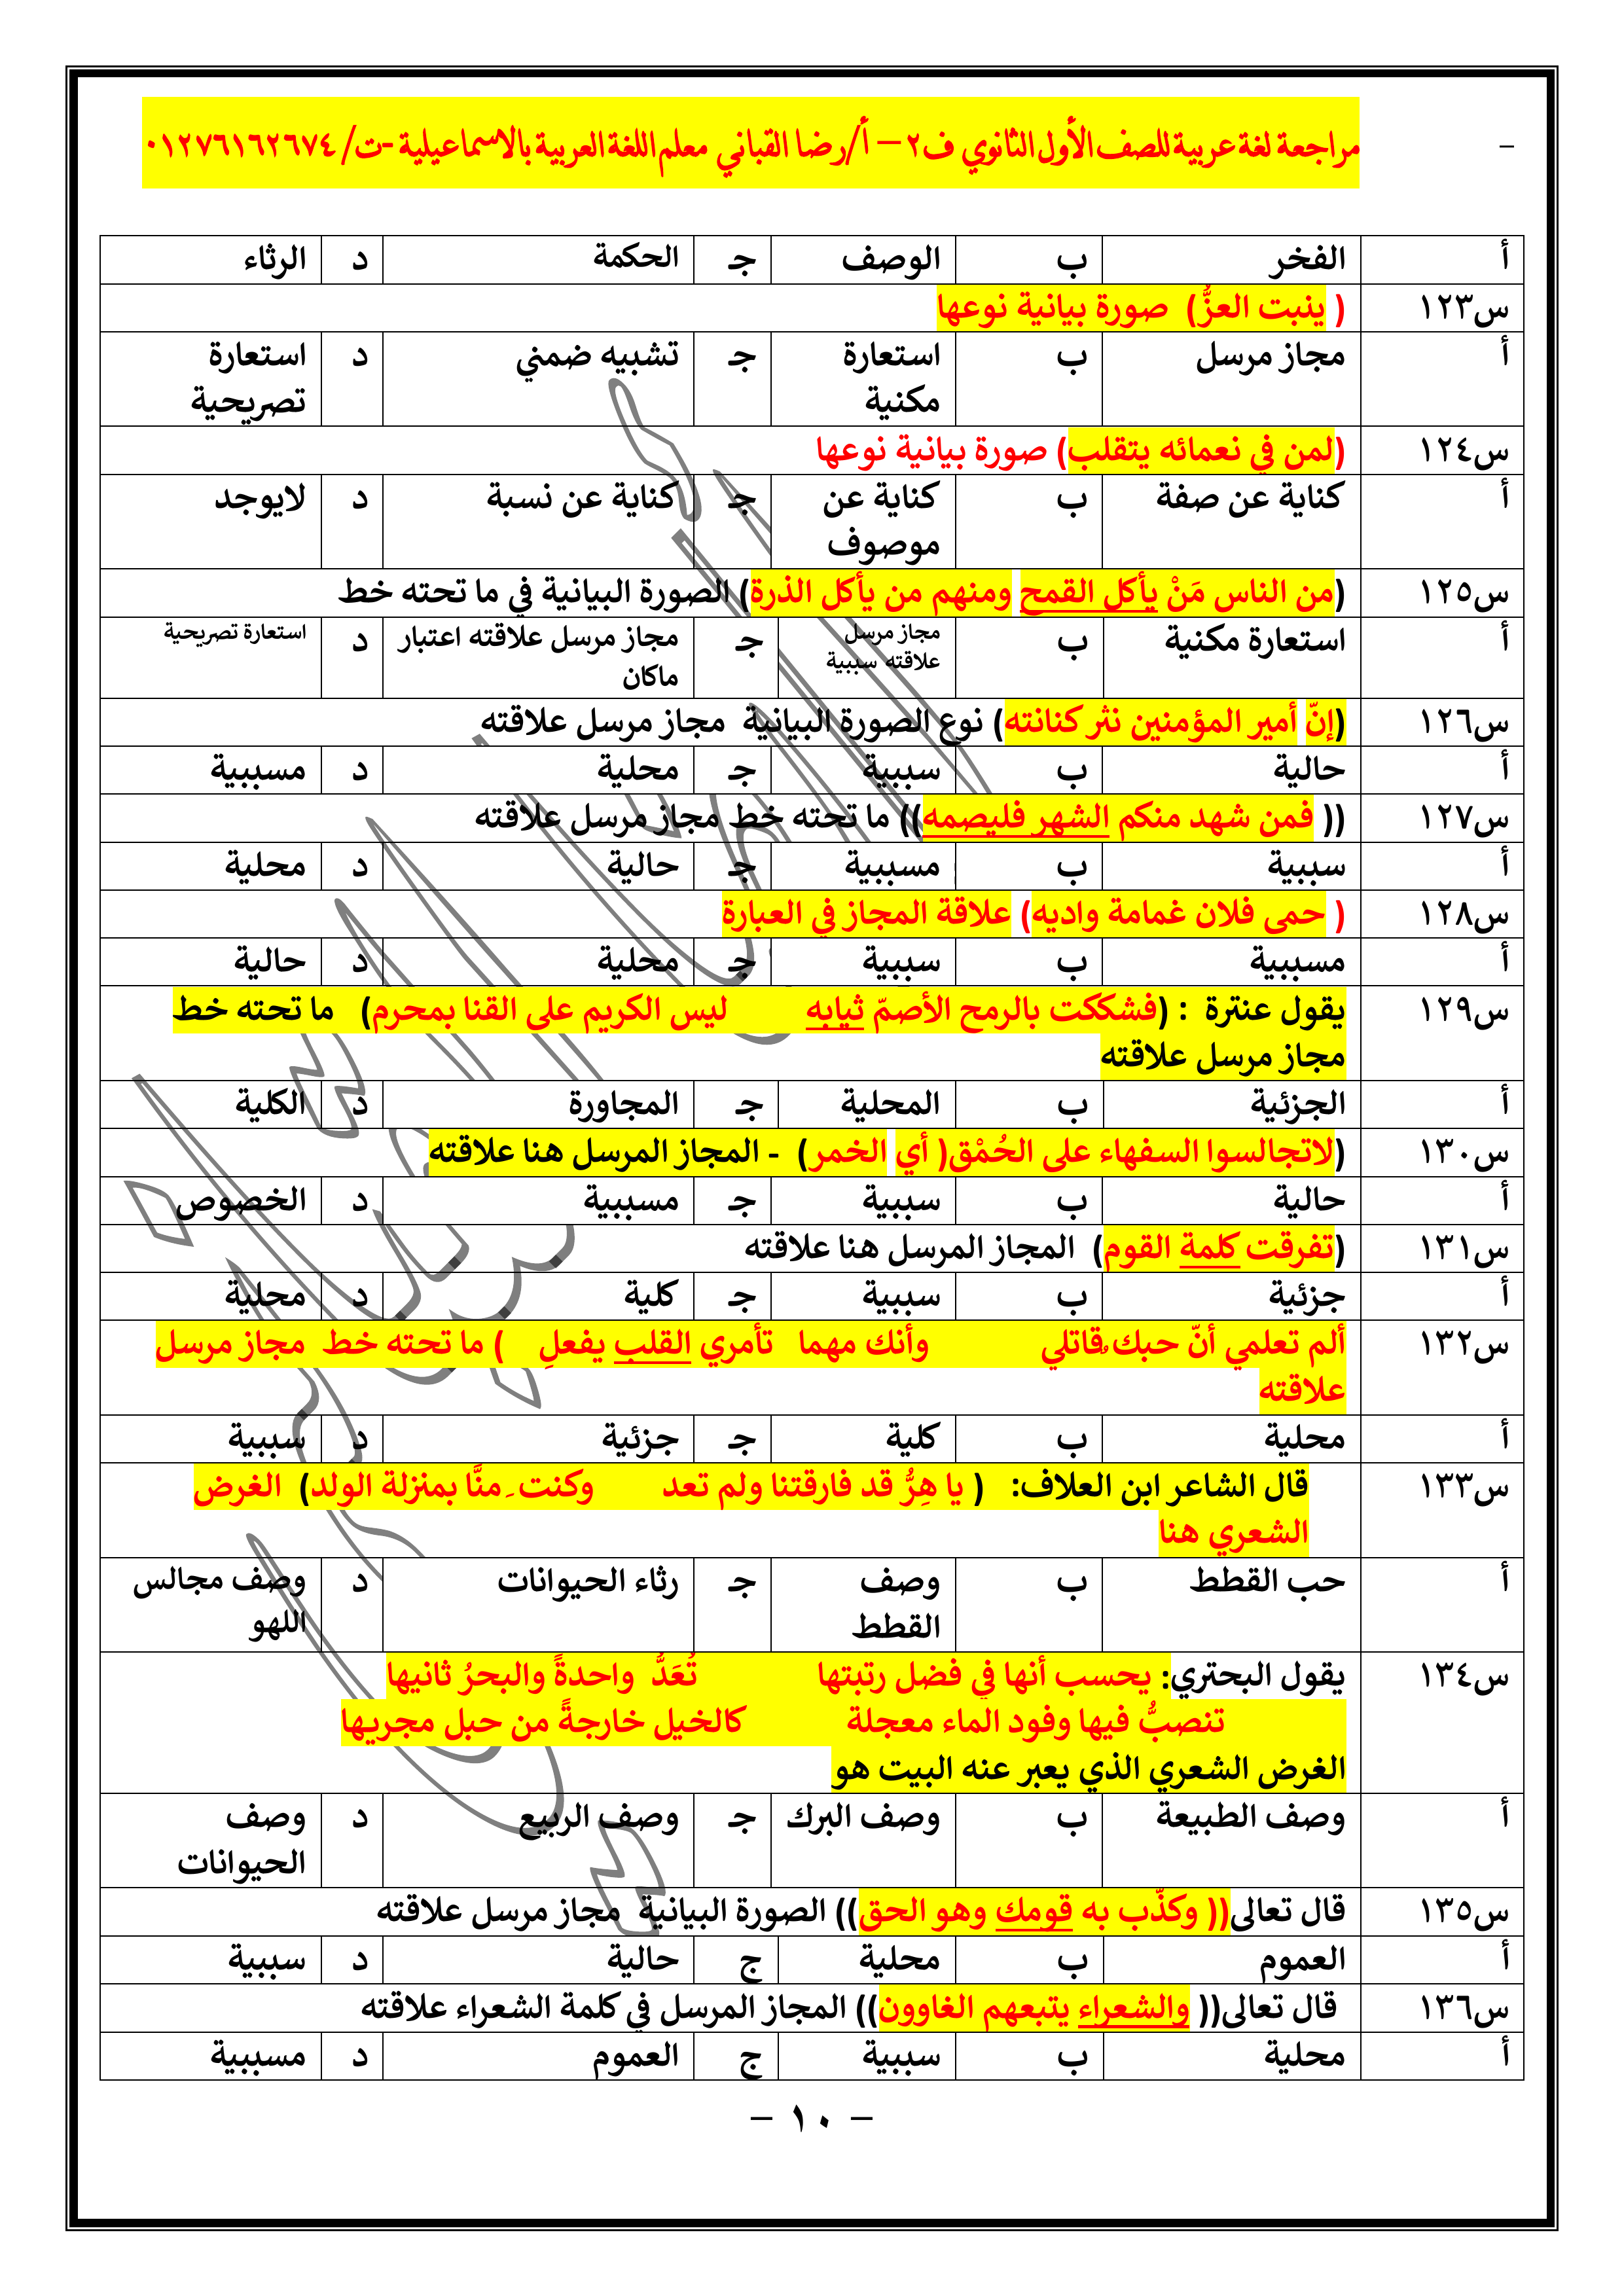 مراجعة لغة عربية للصف الأول الثانوي ف٢ – أ/رضا القباني معلم اللغة العربية بالاسماعيلية -ت/ ٠١٢٧٦١٦٢٦٧٤
–
أ الفخر ب الوصف جـ الحكمة د الرثاء
س١٢٣ ( ينبت العزُّ) صورة بيانية نوعها
أ مجاز مرسل ب استعارة جـ تشبيه ضمني د استعارة
مكنية تصريحية
س١٢٤ (لمن في نعمائه يتقلب) صورة بيانية نوعها
أ كناية عن صفة ب كناية عن جـ كناية عن نسبة د لايوجد
موصوف
س١٢٥ (من الناس مَنْ يأكل القمح ومنهم من يأكل الذرة) الصورة البيانية في ما تحته خط
أ استعارة مكنية ب مجاز مرسل جـ مجاز مرسل علاقته اعتبار د استعارة تصريحية
علاقته سببية ماكان
س١٢٦ (إنّ أمير المؤمنين نثر كنانته) نوع الصورة البيانية مجاز مرسل علاقته
أ حالية ب سببية جـ محلية د مسببية
س١٢٧ (( فمن شهد منكم الشهر فليصمه)) ما تحته خط مجاز مرسل علاقته
أ سببية ب مسببية جـ حالية د محلية
س١٢٨ ( حمى فلان غمامة واديه) علاقة المجاز في العبارة
أ مسببية ب سببية جـ محلية د حالية
س١٢٩ يقول عنترة : (فشككت بالرمح الأصمّ ثيابه ليس الكريم على القنا بمحرم) ما تحته خط
مجاز مرسل علاقته
أ الجزئية ب المحلية جـ المجاورة د الكلية
س١٣٠ (لاتجالسوا السفهاء على الحُمْق( أي الخمر) - المجاز المرسل هنا علاقته
أ حالية ب سببية جـ مسببية د الخصوص
س١٣١ (تفرقت كلمة القوم) المجاز المرسل هنا علاقته
أ جزئية ب سببية جـ كلية د محلية
س١٣٢ ألم تعلمي أنّ حبك ُقاتلي وأنك مهما تأمري القلب يفعلِ ) ما تحته خط مجاز مرسل
علاقته
أ محلية ب كلية جـ جزئية د سببية
س١٣٣ قال الشاعر ابن العلاف: ( يا هِرُّ قد فارقتنا ولم تعد وكنت ِمنَّا بمنزلة الولد) الغرض
الشعري هنا
أ حب القطط ب وصف جـ رثاء الحيوانات د وصف مجالس
القطط اللهو
س١٣٤ يقول البحتري: يحسب أنها في فضل رتبتها تُعَدُّ واحدةً والبحرُ ثانيها
تنصبُّ فيها وفود الماء معجلة كالخيل خارجةً من حبل مجريها
الغرض الشعري الذي يعبر عنه البيت هو
أ وصف الطبيعة ب وصف البرك جـ وصف الربيع د وصف
الحيوانات
س١٣٥ قال تعالى(( وكذّب به قومك وهو الحق)) الصورة البيانية مجاز مرسل علاقته
أ العموم ب محلية ج حالية د سببية
س١٣٦ قال تعالى(( والشعراء يتبعهم الغاوون)) المجاز المرسل في كلمة الشعراء علاقته
أ محلية ب سببية ج العموم د مسببية
– ١٠ –